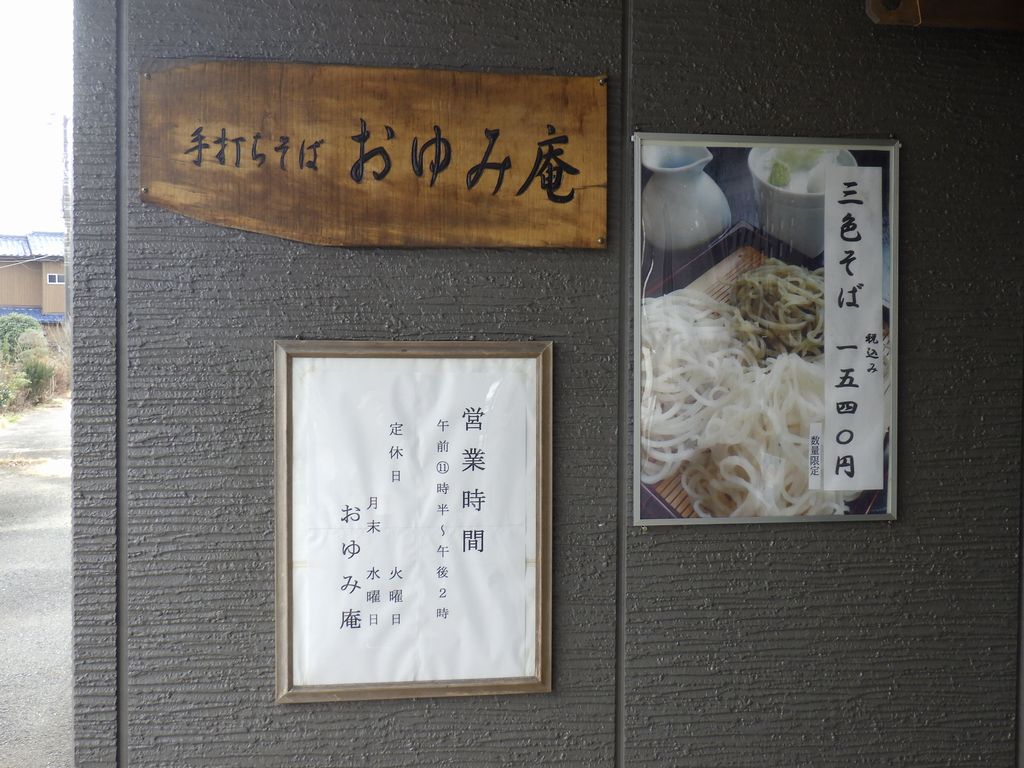 手打ちそば おゆみ庵
三色そば 一五四〇円
税込み
数量限定
営業時間
午前⑪時半～午後２時
定休日 火曜日
月末 水曜日
おゆみ庵